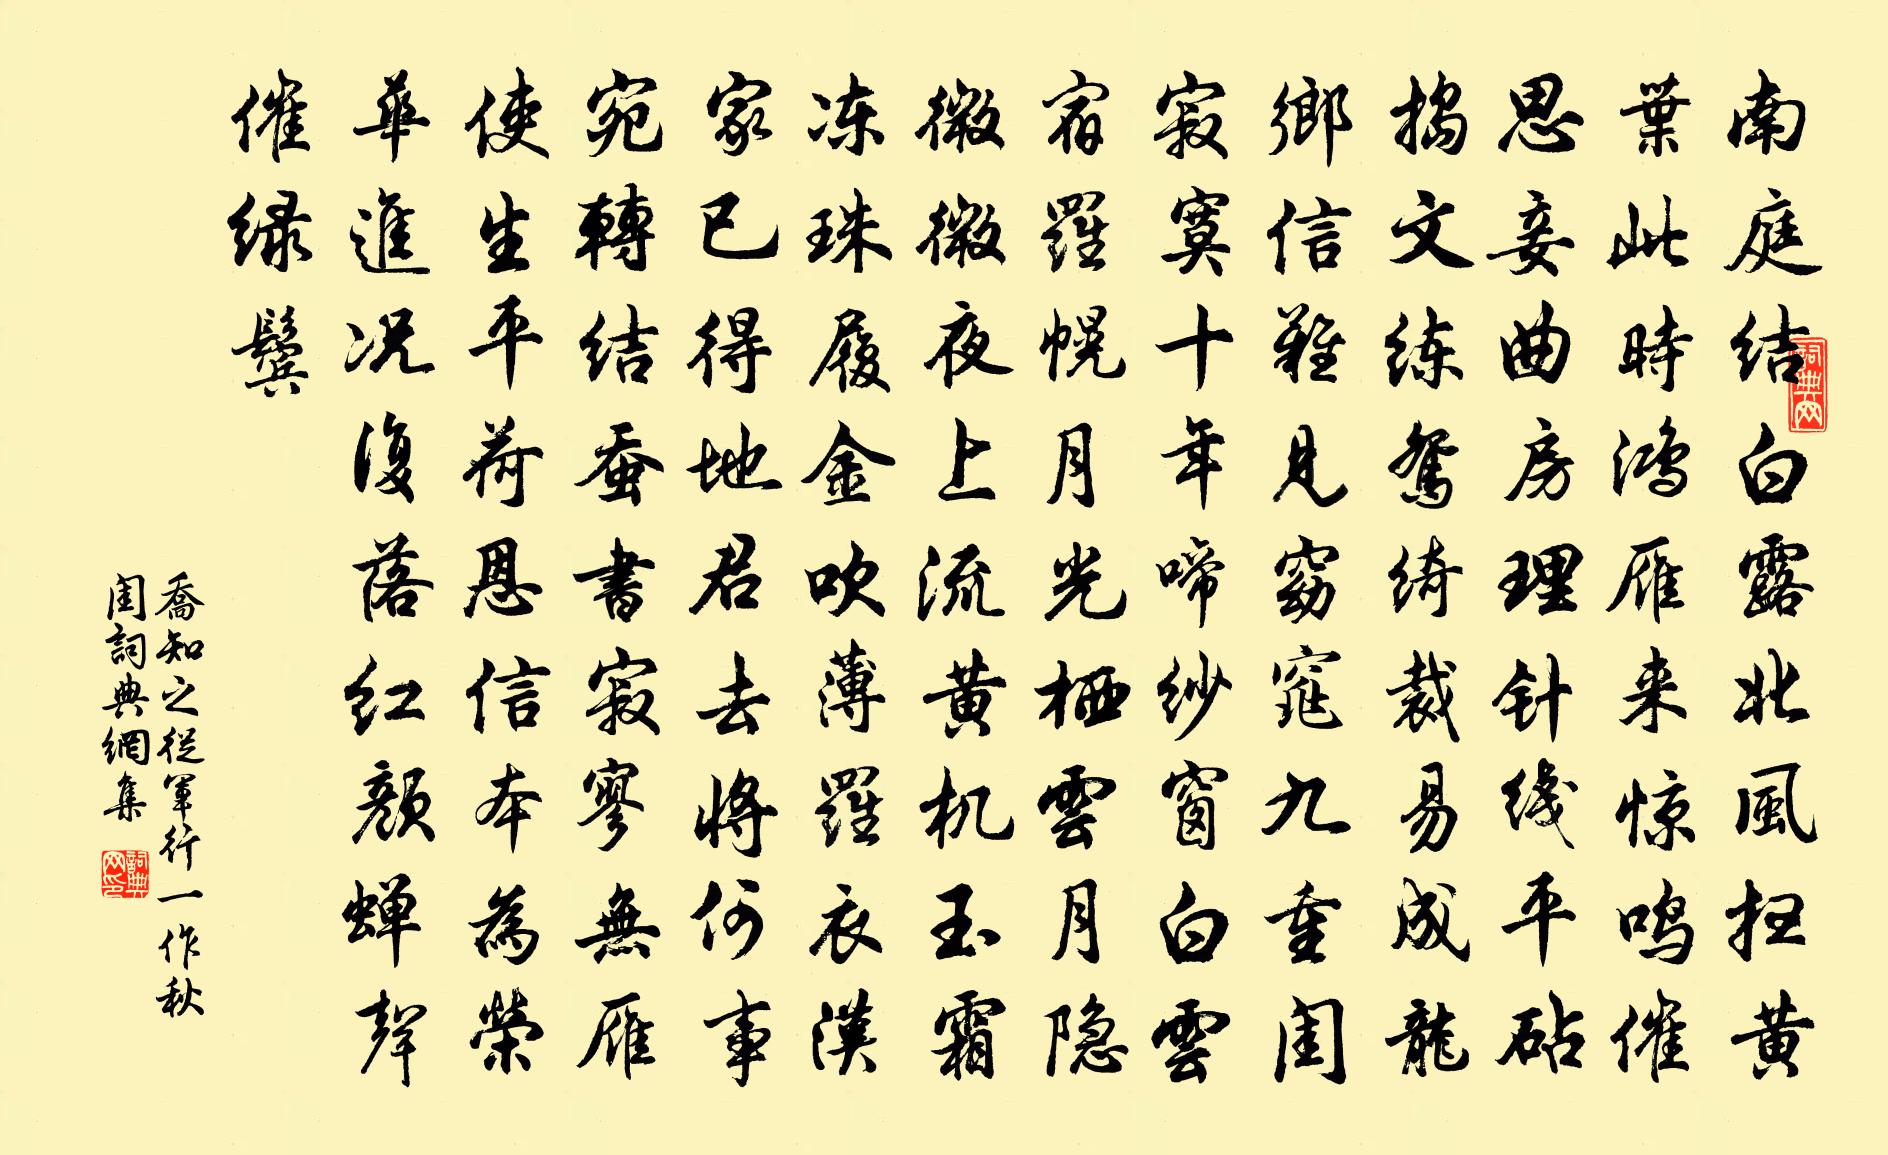 南庭结白露北風扫黄
葉此時鸿雁来惊鸣催
思妾曲房理针线平砧
捣文练鸳绮裁易成龍
鄉信难見窈窕九重闺
寂寞十年啼纱窗白雲
宿羅幌月光栖雲月隐
微微夜上流黄机玉霜
冻珠履金吹薄羅衣漢
家已得地君去将何事
宛轉结蚕書寂寥無雁
使生平荷恩信本為荣
華進况復落红颜蝉聲
催绿鬓
喬知之從軍行一作秋
闺詞典網集
詞典网
詞典网印